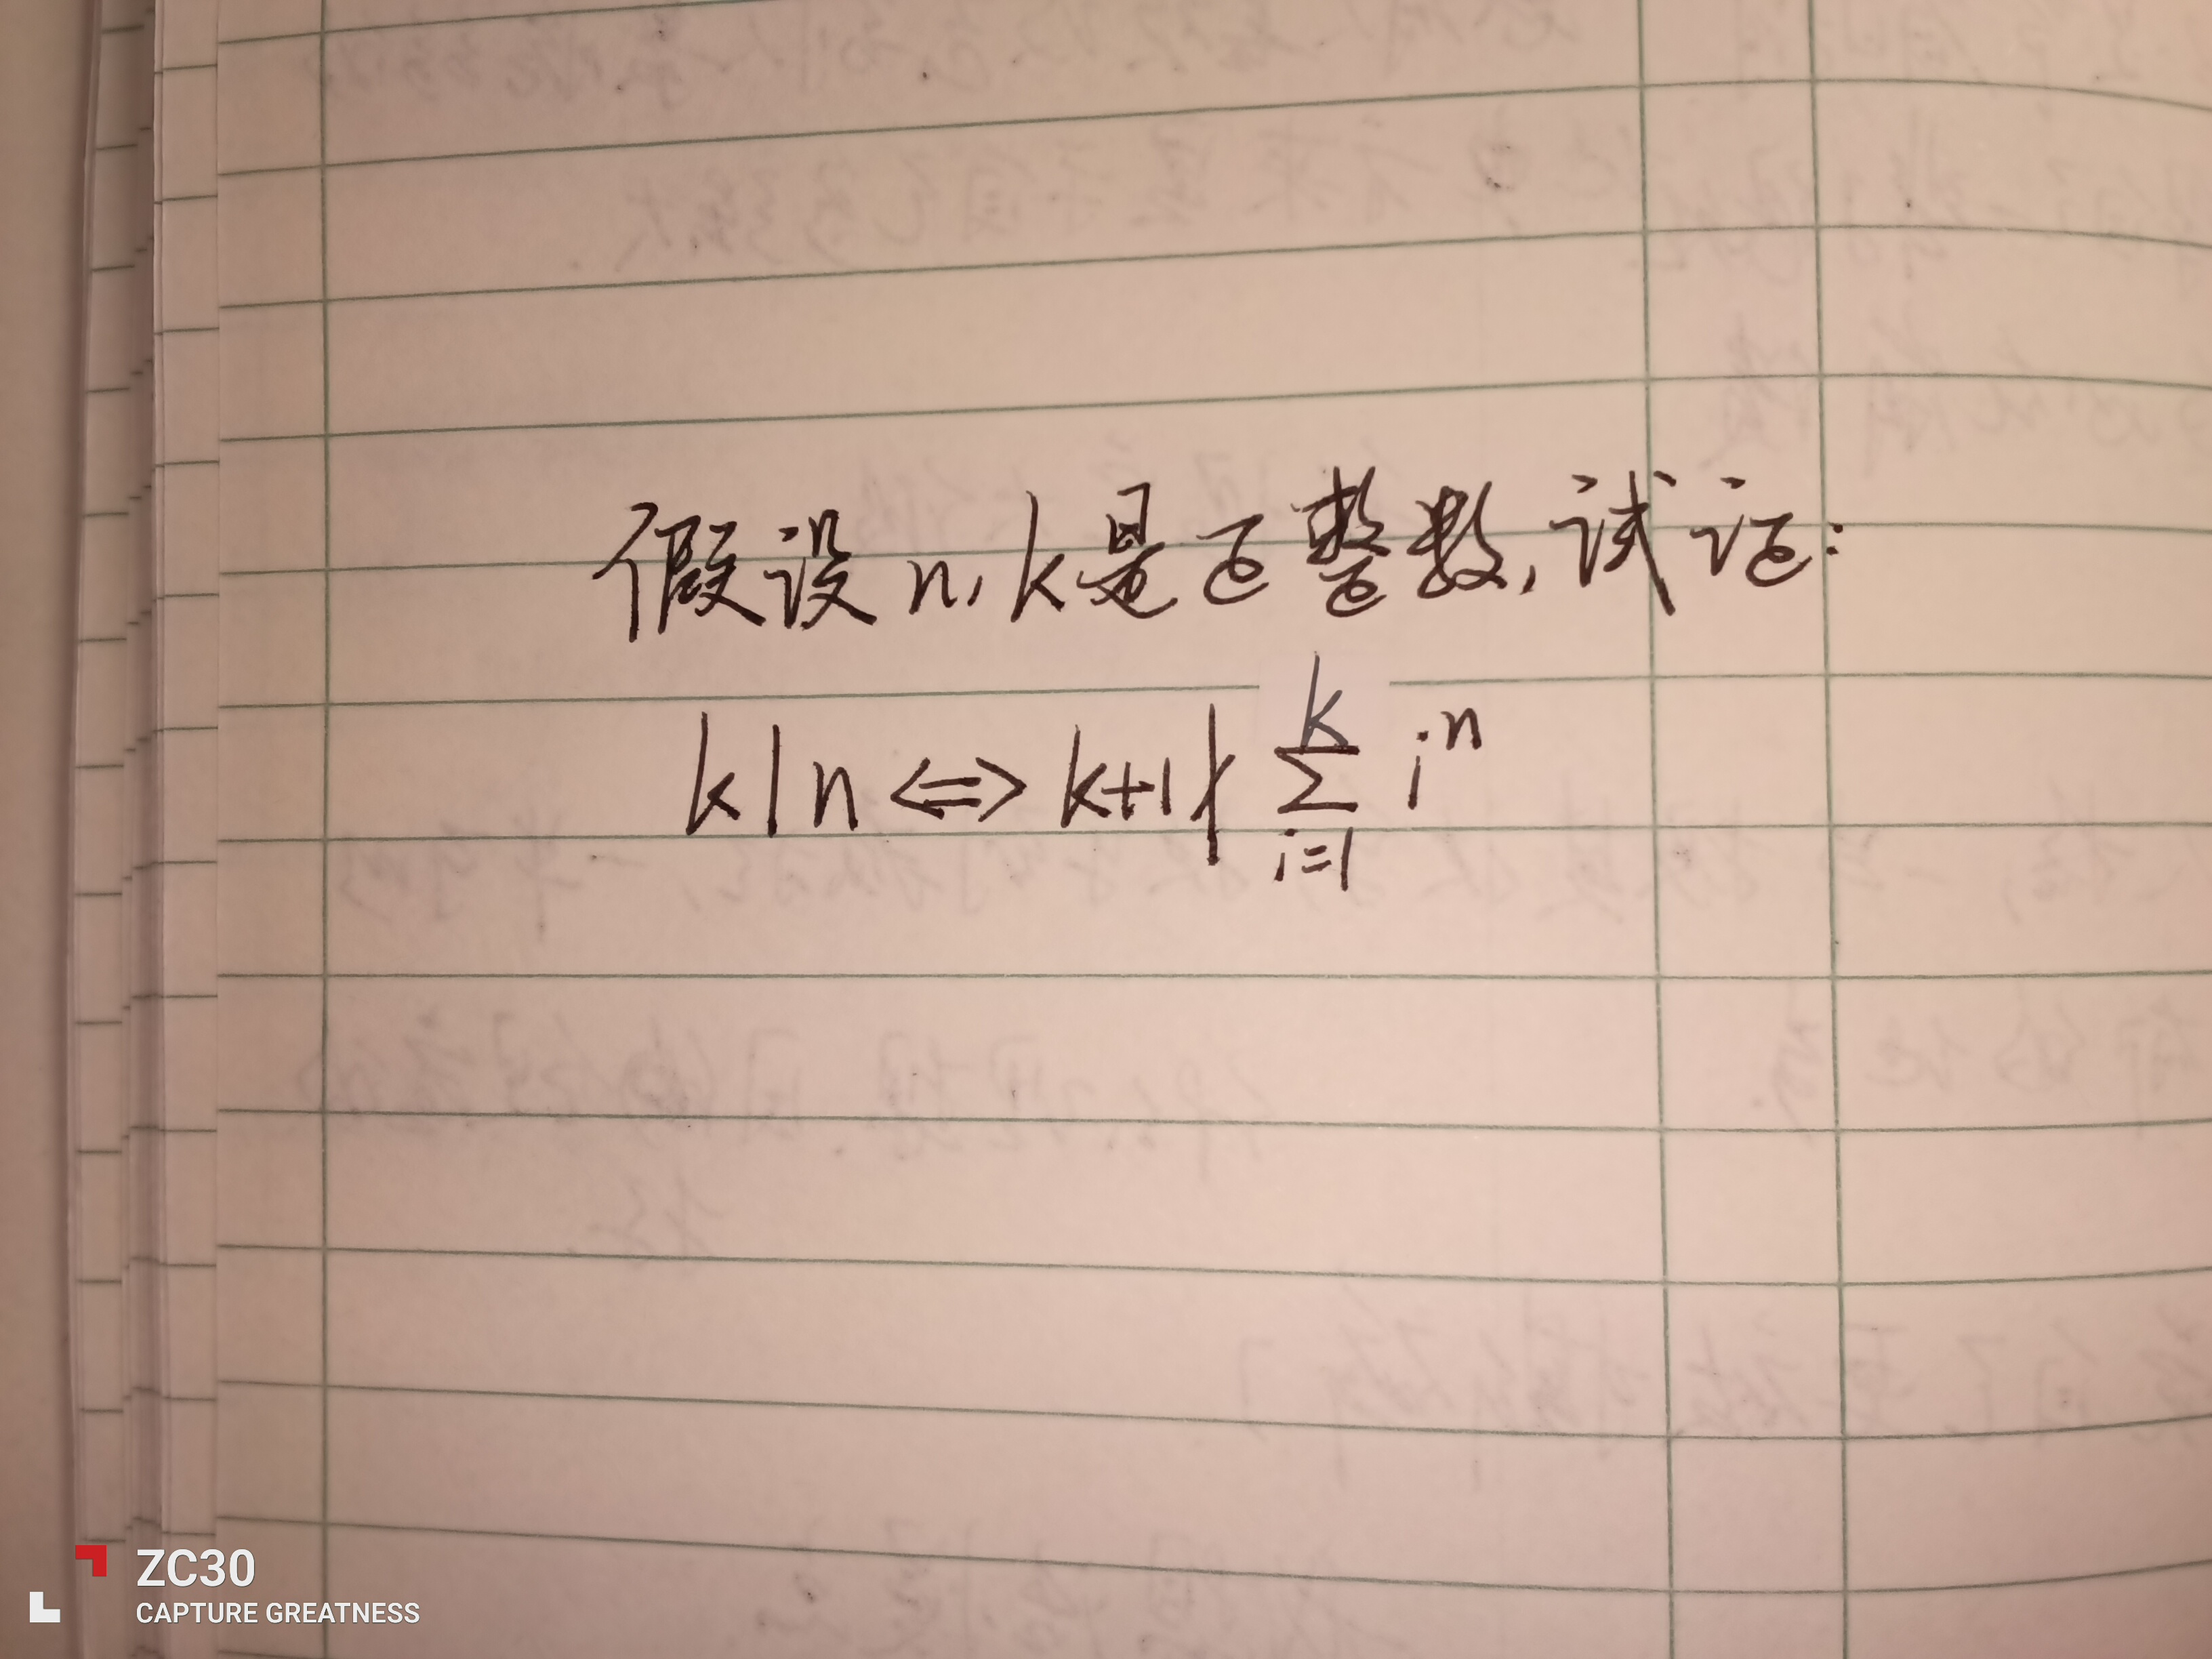 假设n,k是正整数,试证:
k|n⇔k+1∤∑_{i=1}^{k} i^n
ZC30
CAPTURE GREATNESS